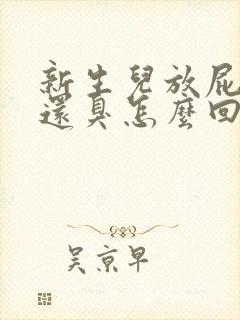 新生兒放屁
還臭怎麼回
吳京早